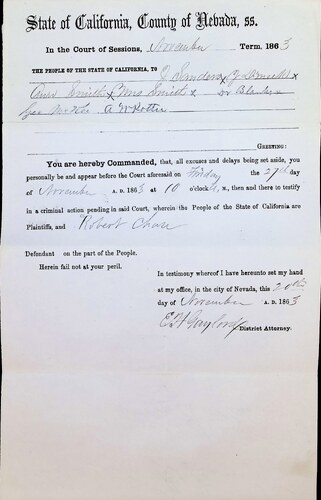 State of California, County of Nevada, ss.
In the Court of Sessions, November Term, 1863
THE PEOPLE OF THE STATE OF CALIFORNIA, TO Sanders
Smith Smith Dr
Geo A W Potter
GREETING:
You are hereby Commanded, that, all excuses and delays being set aside, you
personally be and appear before the Court aforesaid on Friday the 27th day
of November A. D. 1863 at 10 o'clock M., then and there to testify
in a criminal action pending in said Court, wherein the People of the State of California are
Plaintiffs, and Robert
Defendant on the part of the People.
Herein fail not at your peril.
In testimony whereof I have hereunto set my hand
at my office, in the city of Nevada, this 20th
day of November A. D. 1863
E H Gaylord
District Attorney.